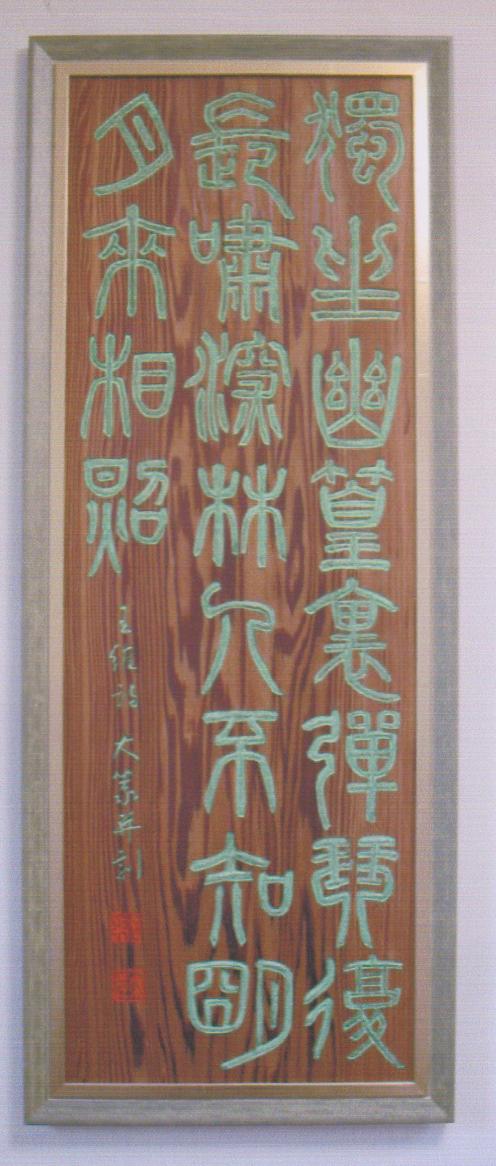 獨坐幽篁裏彈琴復
長嘯深林人不知明
月來相照
王維詩 大篆并刻